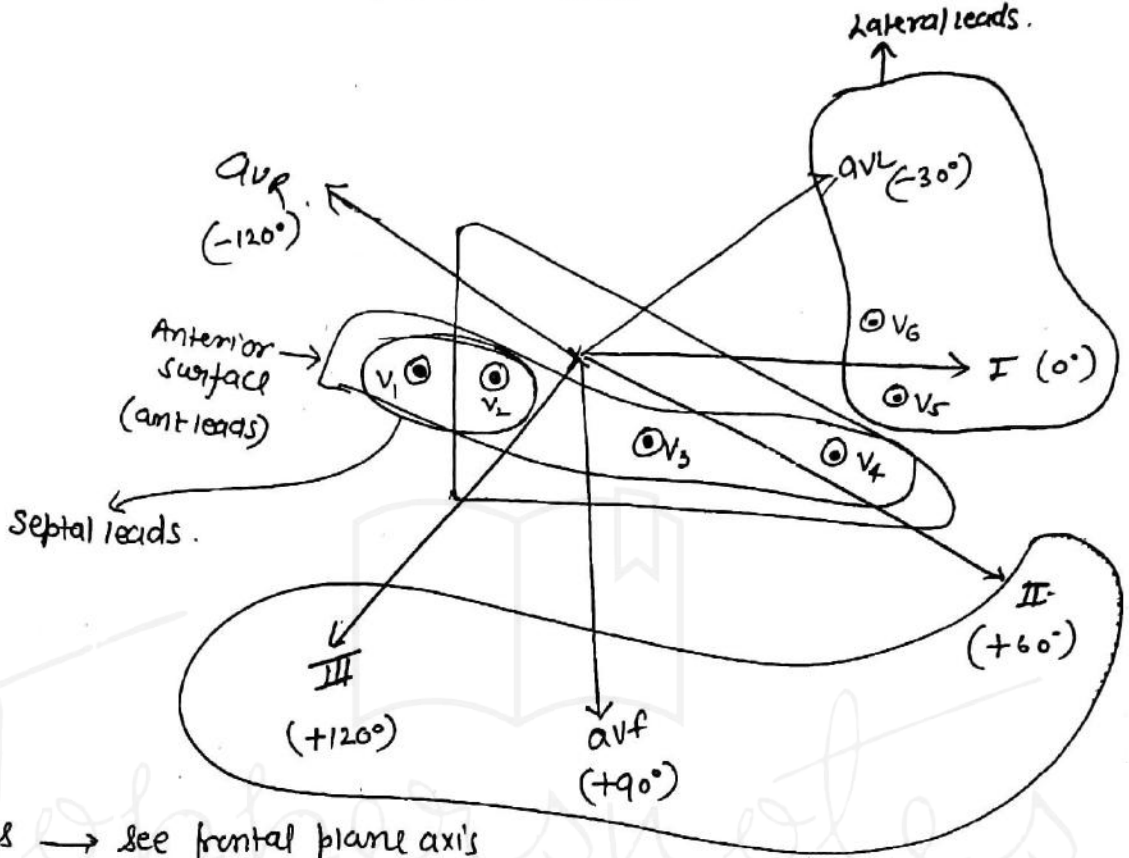 Lateral leads.
aVR
(-120°)
aVL (-30°)
V6
I (0°)
V5
Anterior
surface
(ant leads)
V1
V2
V3
V4
Septal leads.
II
(+60°)
III
(+120°)
avf
(+90°)
s → see frontal plane axis